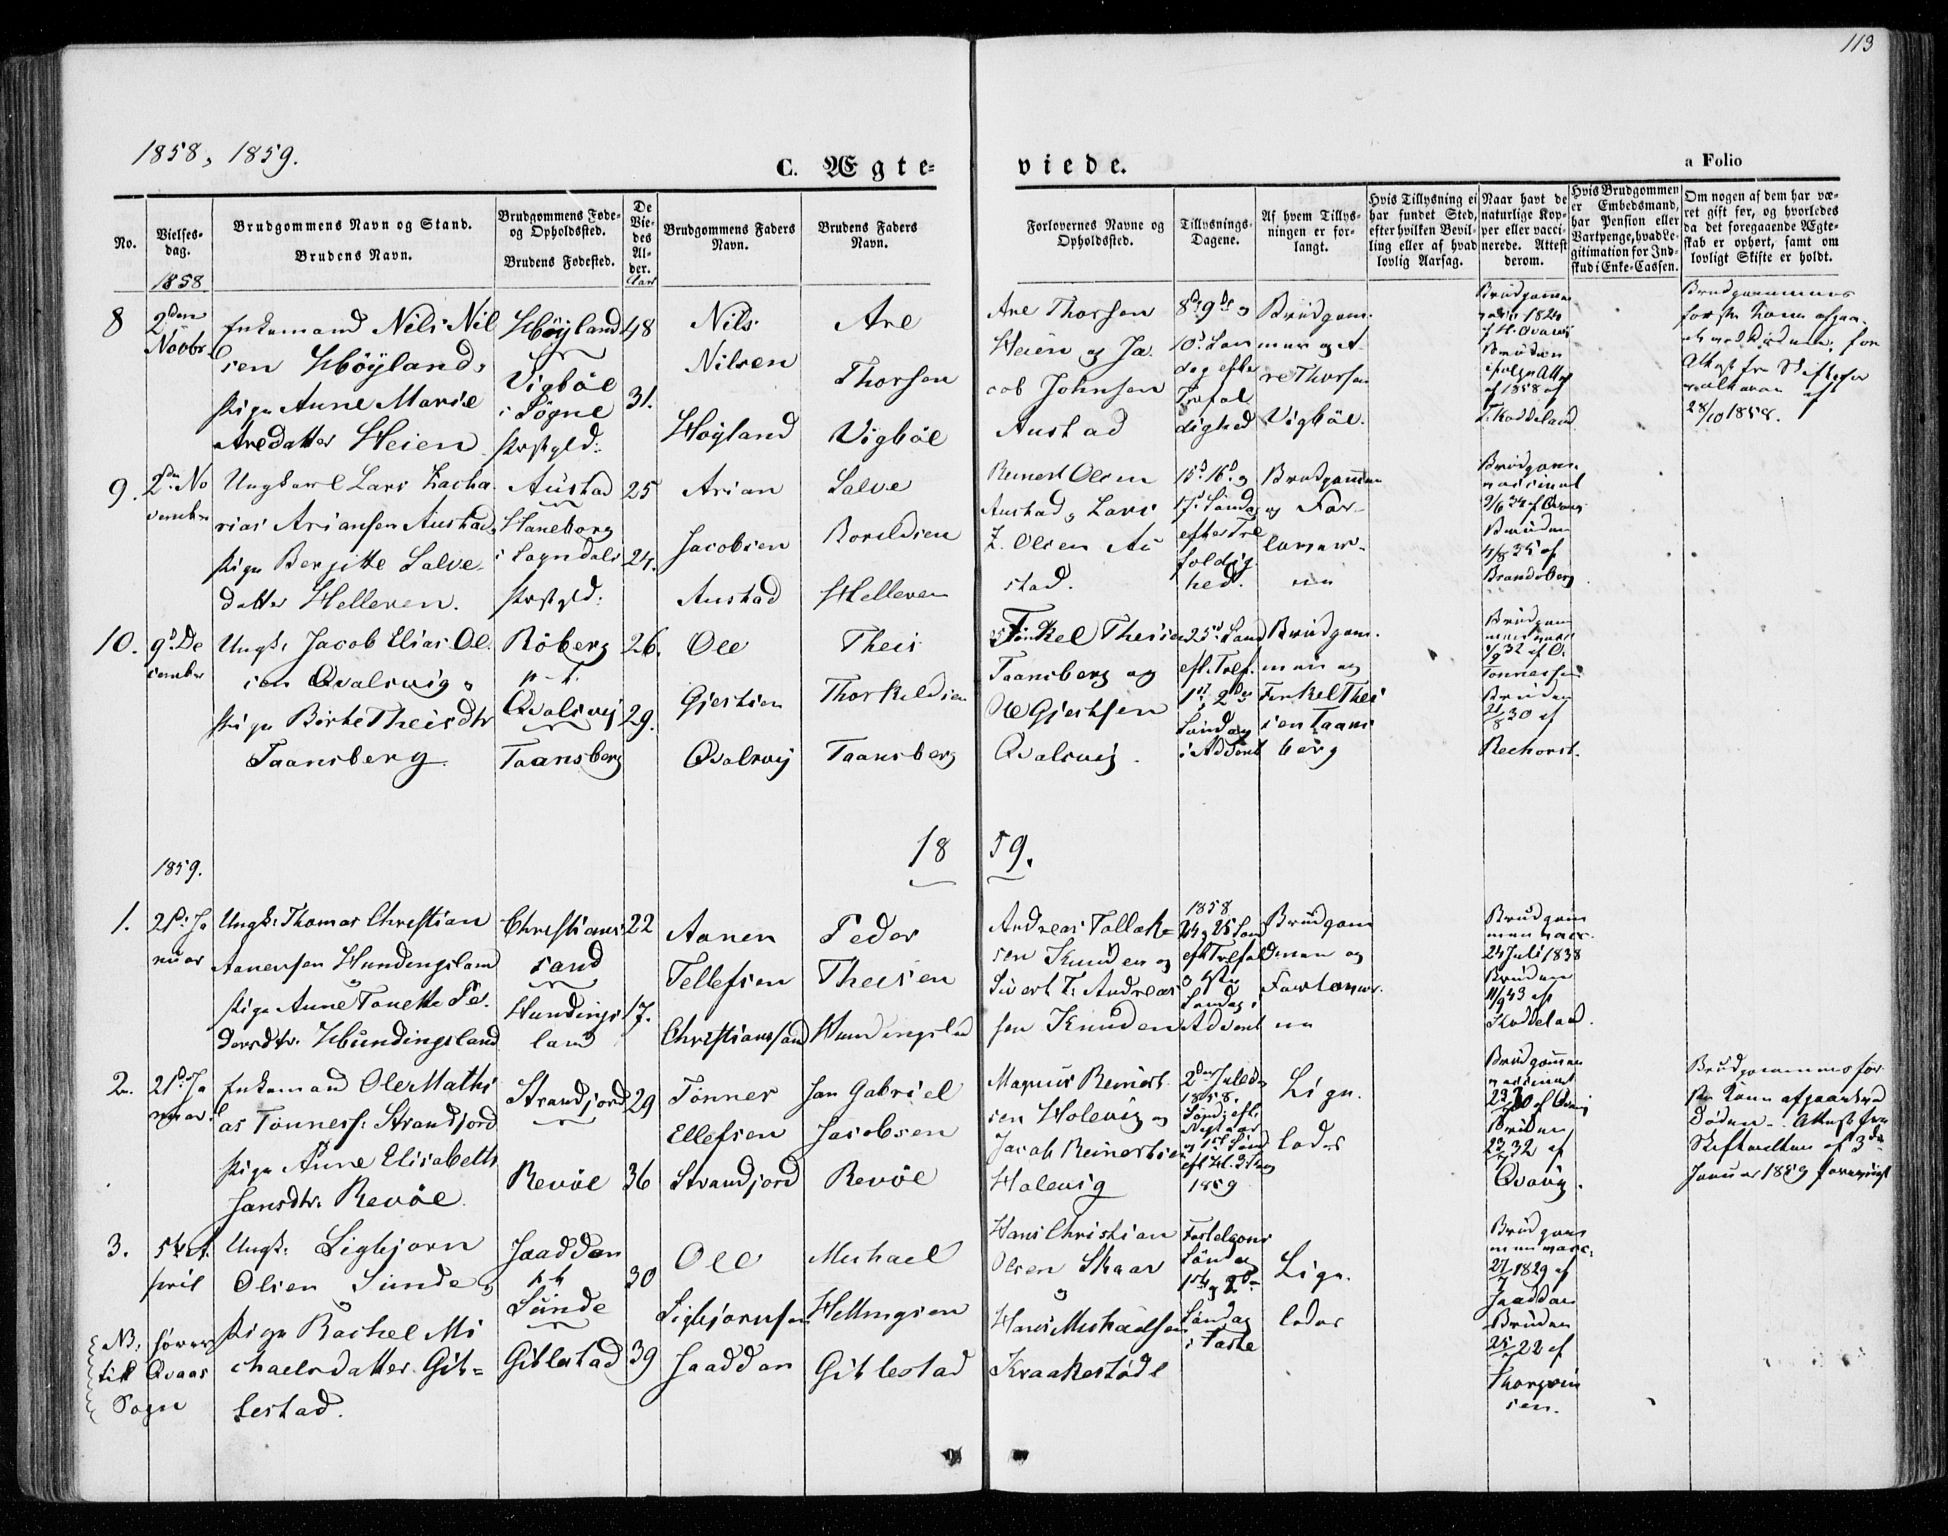 113
1858, 1859.
C. Ægte-
viede.
a Folio
No.
Vielses-
dag.
Brudgommens Navn og Stand.
Brudens Navn.
Brudgommens Føde-
og Opholdssted.
Brudens Fødested.
De
Vie-
des
Al-
der.
Brudgommens Faders
Navn.
Brudens Faders
Navn.
Forlovernes Navne og
Opholdssted.
Tillysnings-
Dagene.
Af hvem Tillys-
ningen er for-
langt.
Hvis Tillysning ei
har fundet Sted,
efter hvilken Bevil-
ling eller af hvad
lovlig Aarsag.
Naar havt de
naturlige Kop-
per eller vacci-
nerede. Attest
derom.
Hvis Brudgommen
er Embedsmand,
har Pension eller
Vartpenge, hvad Le-
gitimation for Ind-
skud i Enke-Cassen.
Om nogen af dem har væ-
ret gift før, og hvorledes
da det foregaaende Ægte-
skab er ophørt, samt om
lovligt Skifte er holdt.
1858
8
2den
Novbr.
Enkemand Nils Nil
sen Høyland,
Pige Anne Marie
Aredatter Heien
Høyland
Vigbøe
i Søgne
Præstgld:
48
31.
Nils
Nilsen
Høyland
Are
Thorsen
Vigbøe
Are Thorsen
Heien og Ja
cob Johnsen
Austad
8d 9de og
10d Søn
dag efter
Trefol
dighed
Brudgom
men og A
re Thorsen
Vigbøe.
Brudgommen
1820
Bruden
af 1858 af
Brudgommens
første Kone afgaa
28/10 1858.
9.
2den No
vember
Ungkarl Lars Zacha
rias Ariansen Austad,
Pige Bergitte Salve
datter Helleren.
Austad
Haneborg
i Sogndals
Præstgld:
25
24.
Arian
Jacobsen
Austad
Salve
Helleren
Reinert Olsen
Austad, Lars
Z. Olsen Au
stad.
15d 16d og
17d Søndag
efter Tre
foldig
hed.
Brudgommen
og For-
lover-
ne
Brudgom.
vaccineret
Bruden
4/8 35 af
Brandsberg.
10.
9d De
cember
Ungk. Jacob Elias Ol
sen Qvalsvig,
Pige Birte Theisdtr
Taansberg.
Røberg
p. t.
Qvalsvig
Taansberg
26.
29.
Ole
Gjertsen
Qvalsvig
Theis
Thorkeldsen
Taansberg
Terkel Theisen
Taansberg og
Ole Gjertsen
Qvalsvig.
25d Sønd
eft. Tref.
1st, 2den
Søndag
i Advent
Brudgom.
men og
Terkel Thei
sen Taans
berg
Brudgom
Tønnessen
Bruden
21/8 30 af
Rechorst.
1859.
1859.
1.
21d Ja
nuar
Ungk: Thomas Christian
Aanensen Hundingsland
Pige Anne Tonette Pe
dersdtr. Hundingsland
Christians
sand
Hundings
land
22
17.
Aanen
Tellefsen
Christianssand
Peder
Theisen
Hundingsland
Andreas Tollak
sen Knuden og
Sivert T. Andreas
sen Knuden
1858
24 og 25 Søn
eft Trefold
Søndag i
Advent
Brudgom
men og
Forlover
ne
Brudgom
men vacc.
24 Juli 1838
Bruden
11/9 43 af
Koddeland.
2.
21d Ja
nuar.
Enkemand Ole Mathi
as Tønnes. Strandfjord
Pige Anne Elisabeth
Jansdtr. Revøe.
Strandfjord
Revøe
29
36
Tønnes
Ellefsen
Strandfjord
Jan Gabriel
Jacobsen
Revøe
Magnus Reinert
sen Holevig og
Jacob Reinertsen
Holevig
2den Juled
1858.
Sønd: eft
Nytaar
og 1st Sønd
eft H. 3 Kon
1859
Lige
ledes
Brudgommen
vaccineret
Bruden
32 af
Brudgommens før
ste Kone afgaaet ved
Døden. Attest fra
Skifteretten af 3de
Januar 1859 forevist
3.
5te A
pril
Ungk: Sigbjørn
Olsen Sunde,
Pige Rachel Mi
chaelsdatter Git-
lestad.
NB. hører
til Qvaas
Sogn
Jaaddan
p. t.
Sunde
Gitlestad
30
39
Ole
Sigbjørnsen
Jaaddan
Michael
Hellingsen
Gitlestad
Hans Christian
Olsen Skaar
Hans Michaelsen
Kraakestøde
Fastelavns
Søndag
1ste og 2den
Søndag
i Faste
Lige
ledes
Brudgom
men vacc.
1829 af
Jaaddan
Bruden
22 af
sen.